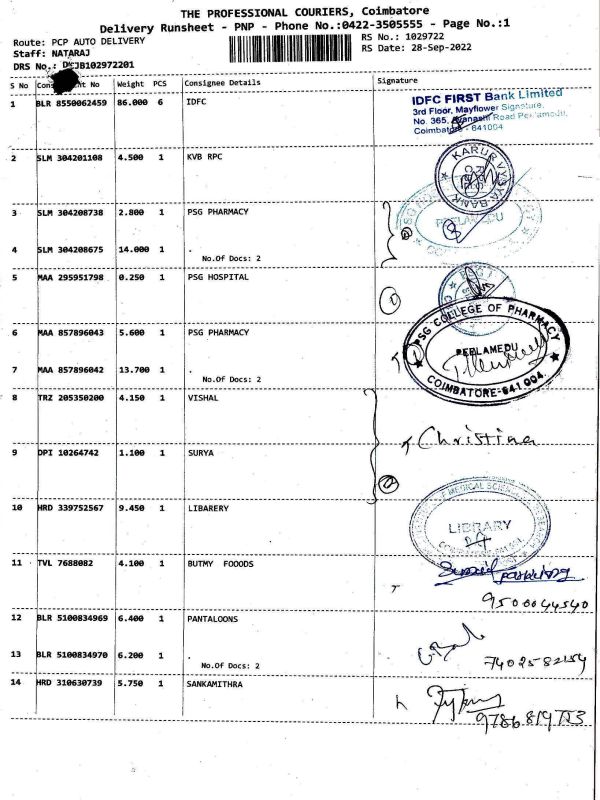 THE PROFESSIONAL COURIERS, Coimbatore
Delivery Runsheet - PNP - Phone No.:0422-3505555 - Page No.:1
Route: PCP AUTO DELIVERY
RS No.: 1029722
Staff: NATARAJ
RS Date: 28-Sep-2022
DRS No.: JB102972201
S No No Weight PCS Consignee Details Signature
1 BLR 8550062459 86.000 6 IDFC
IDFC FIRST Bank Limited
3rd Floor, Mayflower Signature,
No. 365, Avanashi Road Peelamedu,
Coimbatore - 641004
2 SLM 304201108 4.500 1 KVB RPC
KARUR VYSYA BANK
3 SLM 304208738 2.800 1 PSG PHARMACY
PEELAMEDU
4 SLM 304208675 14.000 1 .
No.Of Docs: 2
5 MAA 295951798 0.250 1 PSG HOSPITAL
6 MAA 857896043 5.600 1 PSG PHARMACY
PSG COLLEGE OF PHARMACY
PEELAMEDU
COIMBATORE-641 004.
7 MAA 857896042 13.700 1 .
No.Of Docs: 2
8 TRZ 205350200 4.150 1 VISHAL
Christina
9 DPI 10264742 1.100 1 SURYA
10 HRD 339752567 9.450 1 LIBARERY
LIBRARY
11 TVL 7688082 4.100 1 BUTMY FOOODS
9500044540
12 BLR 5100834969 6.400 1 PANTALOONS
13 BLR 5100834970 6.200 1 .
No.Of Docs: 2
7402582154
14 HRD 310630739 5.750 1 SANKAMITHRA